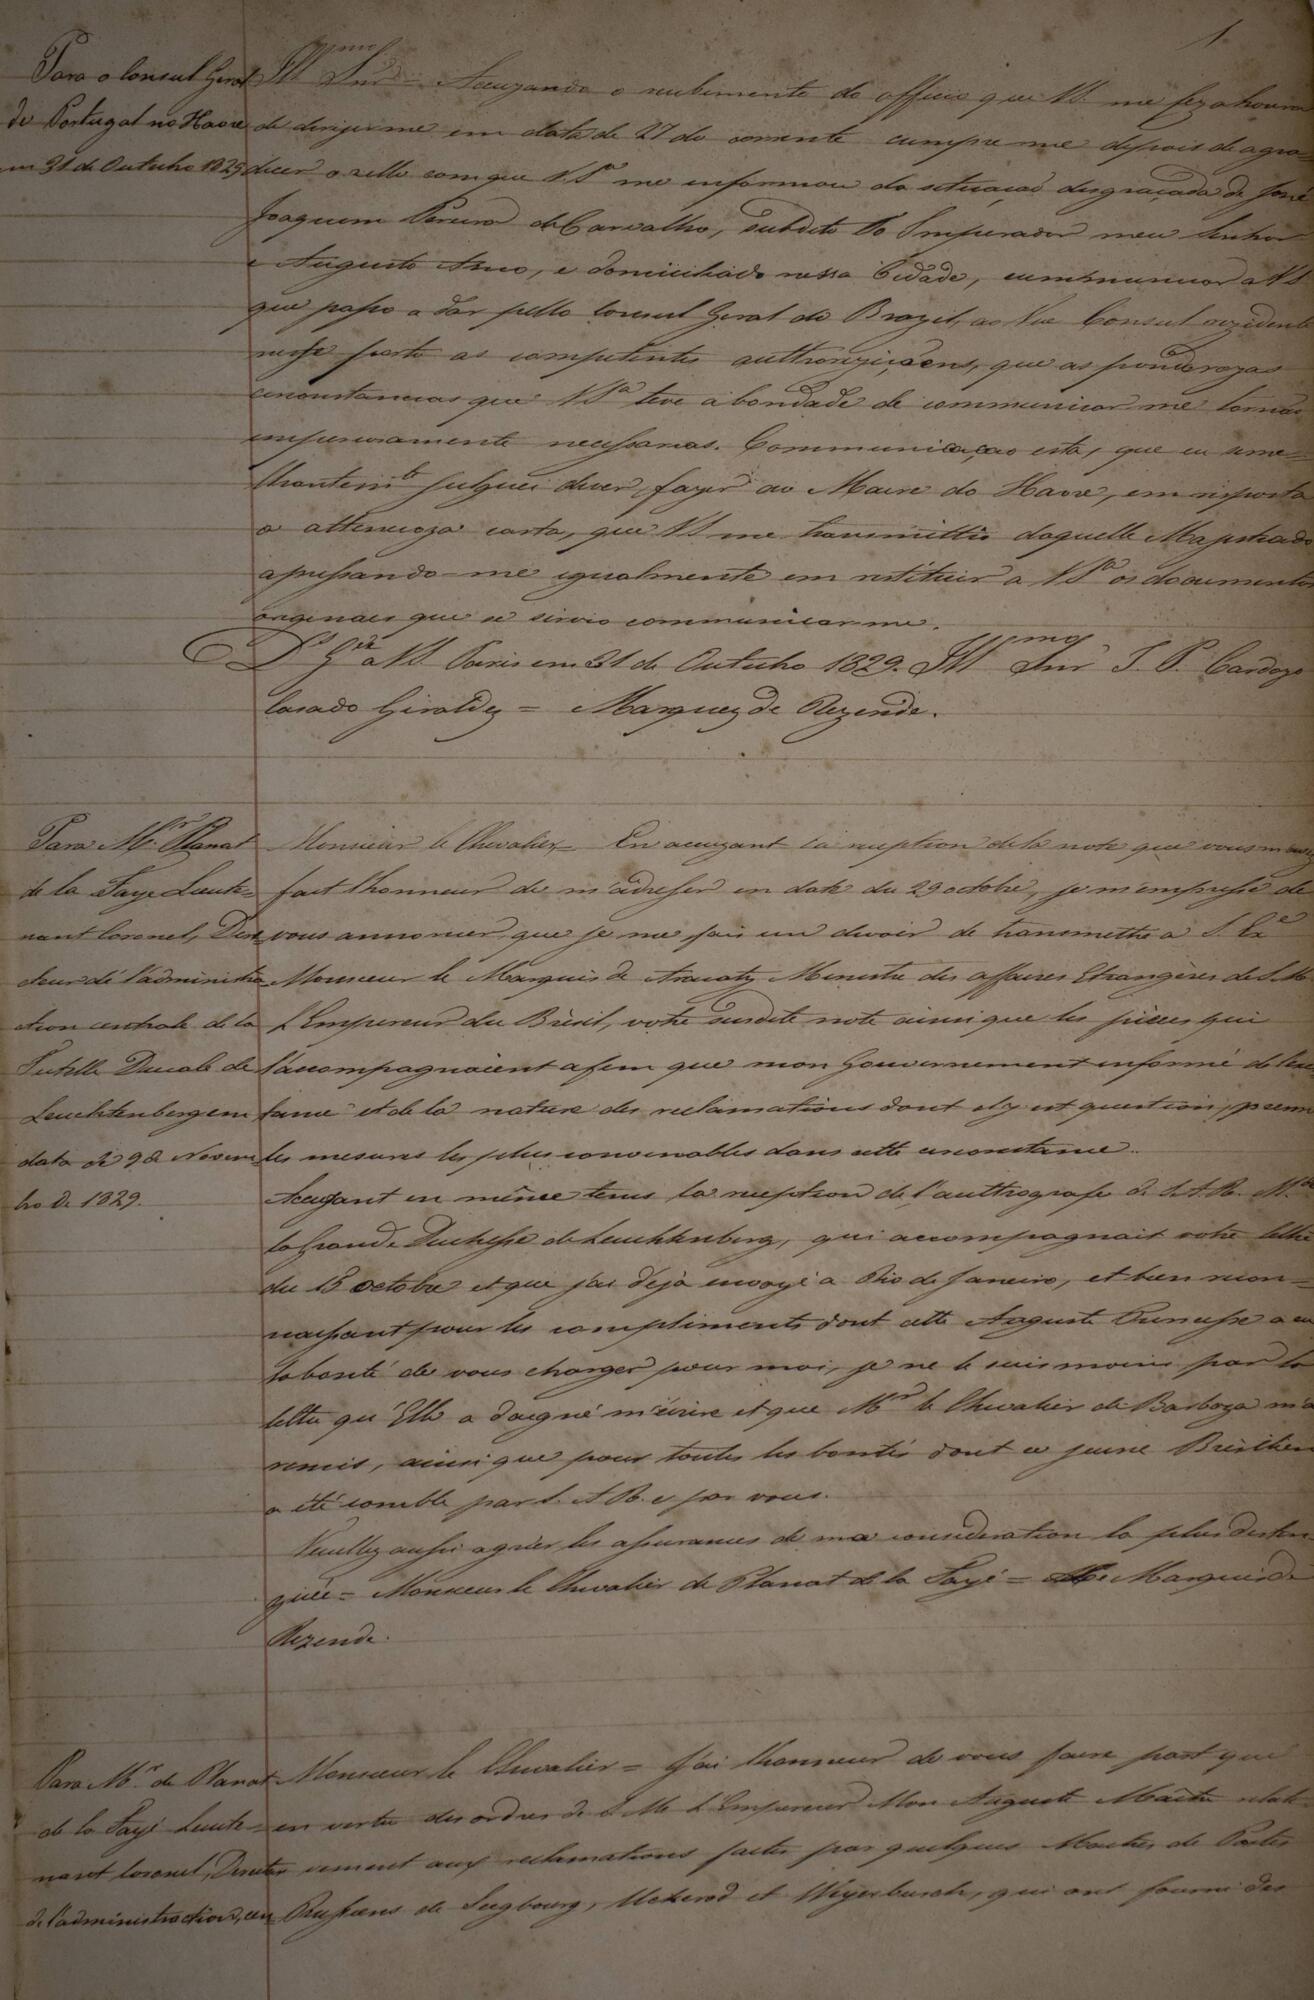 1
Para o Consul Geral
de Portugal no Havre
em 31 de Outubro 1829
Ill.mo Snr = Accuzando o recebimento do officio que VS. me fez a honra
de derigir me em data de 27 do corrente cumpre me depois de agra-
decer o zello com que V.Sa me informou da situaçaõ desgraçada de José
Joaquim Pereira de Carvalho, subdito do Imperador meu Senhor
e Augusto Amo, e domiciliado nessa Cidade, communicar a VS
que passo a dar pello Consul Geral do Brazil, ao Vice Consul rezidente
nesse porto as competentes authoriziçoens, que as ponderozas
circonstancias que V.Sa teve a bondade de communicar me tornaõ
imperiozamente necessarias. Communicaçao esta, que eu seme-
lhantem.te julguei dever fazer ao Maire do Havre, em resposta
a attencioza carta, que VS me transmittio daquelle Magistrado
apressando-me igualmente em restituir a V.Sa os documentos
originaes que se servio communicar me.
D.s G.de a VS. Paris em 31 de Outubro 1829. Ill.mo Snr J. P. Cardozo
Cazado Giraldez = Marquez de Rezende.
Para M.r Planat
de la Faye Lieute=
nant Coronel, Dire
cteur de l'administra
tion centrale de la
Tutelle Ducale de
Leuchtenberg em
data de 9 de Novem
bro de 1829.
Monsieur le Chevalier = En accuzant la reception de la note que vous m'avez
fait l'honneur de m'adresser en date du 29 octobre, je m'empresse de
vous annoncer que je me fais un devoir de transmettre a S. Ex.e
Monsieur le Marquis de Aracaty Ministre des affaires Etrangères de S.M.
L'Empereur du Brèsil, votre susdite note ainsi que les pièces qui
l'accompagnaient afem que mon Gouvernement informé de l'ins
tance et de la nature des reclamations dont il y est question, prenne
les mesures les plus convenables dans cette circonstance.
Accuzant en même tems la reception de l'authografe de S.A.R. M.me
la Grande Duchesse de Leuchtenberg, qui accompagnait votre lettre
du 15 octobre et que j'ai déjà envoyé a Rio de Janeiro, et bien recon=
naissant pour les compliments dont cette Auguste Princesse a eu
la bonté de vous charger pour moi, je ne le suis moins par la
lettre qu'Elle a daigné m'écrire et que M.r le Chevalier de Barboza m'a
remis, ainsi que pour toutes les bontés dont ce jeune Brèsilien
a été comblé par S. A R. e par vous.
Veuillez aussi agréer les assurances de ma consideration la plus distin
guée = Monsieur le Chevalier de Planat de la Fayé = Le Marquis de
Rezende.
Para M.r de Planat
de la Fayé Lieute=
nant Coronel, Director
de l'administration, em
Monsieur le Chevalier = J'ai l'honneur de vous faire part que
en vertu des ordres de S. M. L'Empereur Mon Auguste Maître relati
vement aux reclamations faites par quelques Maitres de Postes
Prussiens de Siegbourg, Uckerad et Weyerbusch, qui ont fourni des